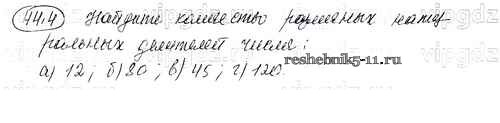 44.4 Найдите количество различных нату-
ральных делителей числа:
а) 12; б) 80; в) 45; г) 120.
reshebnik5-11.ru